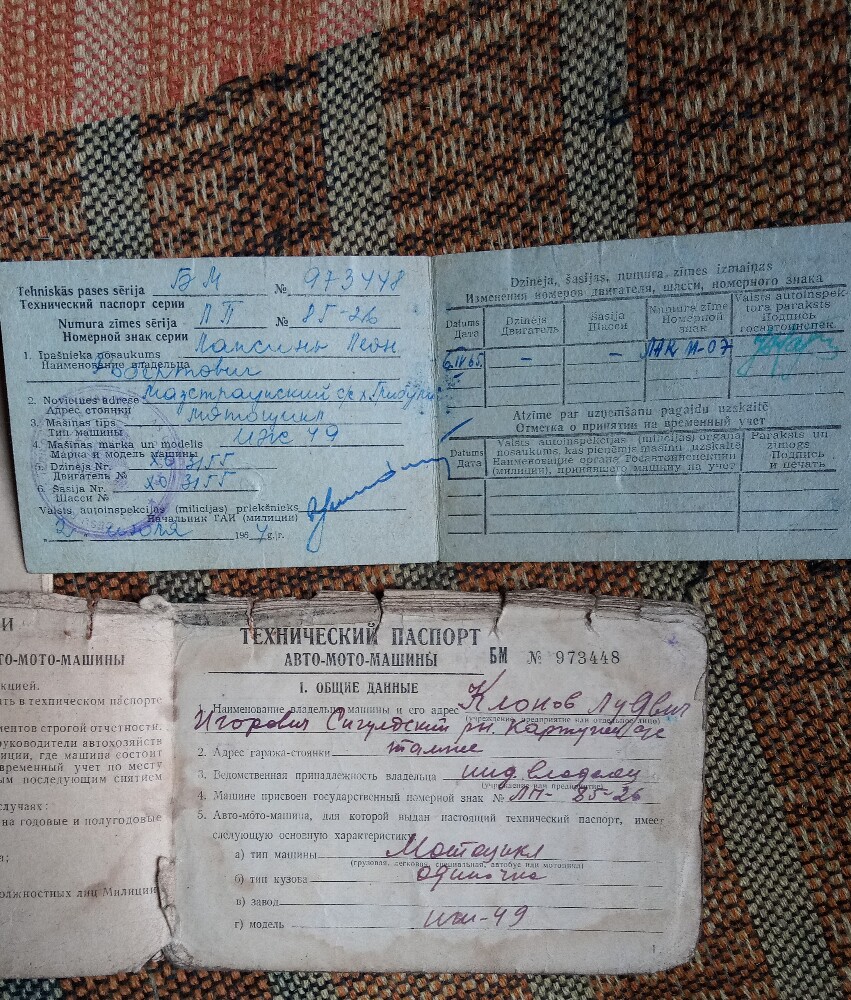 Tehniskās pases sērija БМ № 973448
Технический паспорт серии
Numura zīmes sērija ЛП № 85-26
Номерной знак серии
1. Īpašnieka nosaukums Лапсинь Леон
Наименование владельца Робертович
2. Novietnes adrese
Адрес стоянки
3. Mašīnas tips Мотоцикл
Тип машины
4. Mašīnas marka un modelis ИЖ 49
Марка и модель машины
5. Dzinēja Nr. ХО 3155
Двигатель №
6. Šasija Nr. ХО 3155
Шасси №
Valsts autoinspekcijas (milicijas) priekšnieks
Начальник ГАИ (милиции)
июля 195 g./г.
Dzinēja, šasijas, numura zīmes izmaiņas
Изменения номеров двигателя, шасси, номерного знака
Datums
Дата
Dzinējs
Двигатель
Šasija
Шасси
Numura zīme
Номерной
знак
Valsts autoinspek-
tora paraksts
Подпись
госавтоинспек.
– –
Atzīme par uzņemšanu pagaidu uzskaitē
Отметка о принятии на временный учет
Datums
Дата
Valsts autoinspekcijas (milicijas) organa
nosaukums, kas pieņēmis mašīnu uzskaitē
Наименование органа Госавтоинспекции
(милиции), принявшего машину на учет
Paraksts un
zīmogs
Подпись
и печать
И
ТО-МОТО-МАШИНЫ
кцией.
ать в техническом паспорте
ментов строгой отчетности.
руководители автохозяйств
иции, где машина состоит
временный учет по месту
ым последующим снятием
случаях:
на годовые и полугодовые
а;
должностных лиц Милиции
ТЕХНИЧЕСКИЙ ПАСПОРТ
АВТО-МОТО-МАШИНЫ БМ № 973448
1. ОБЩИЕ ДАННЫЕ
1. Наименование владельца машины и его адрес Клонов Лудвиг
(учреждение, предприятие или отдельное лицо)
Игорович Сигулдский рн.
2. Адрес гаража-стоянки
3. Ведомственная принадлежность владельца инд. владелец
(учреждение или предприятие)
4. Машине присвоен государственный номерной знак № ЛП- 85-26
5. Авто-мото-машина, для которой выдан настоящий технический паспорт, имеет
следующую основную характеристику
а) тип машины Мотоцикл
(грузовая, легковая, специальная, автобус или мотоцикл)
б) тип кузова одиночка
в) завод
г) модель иж-49
1